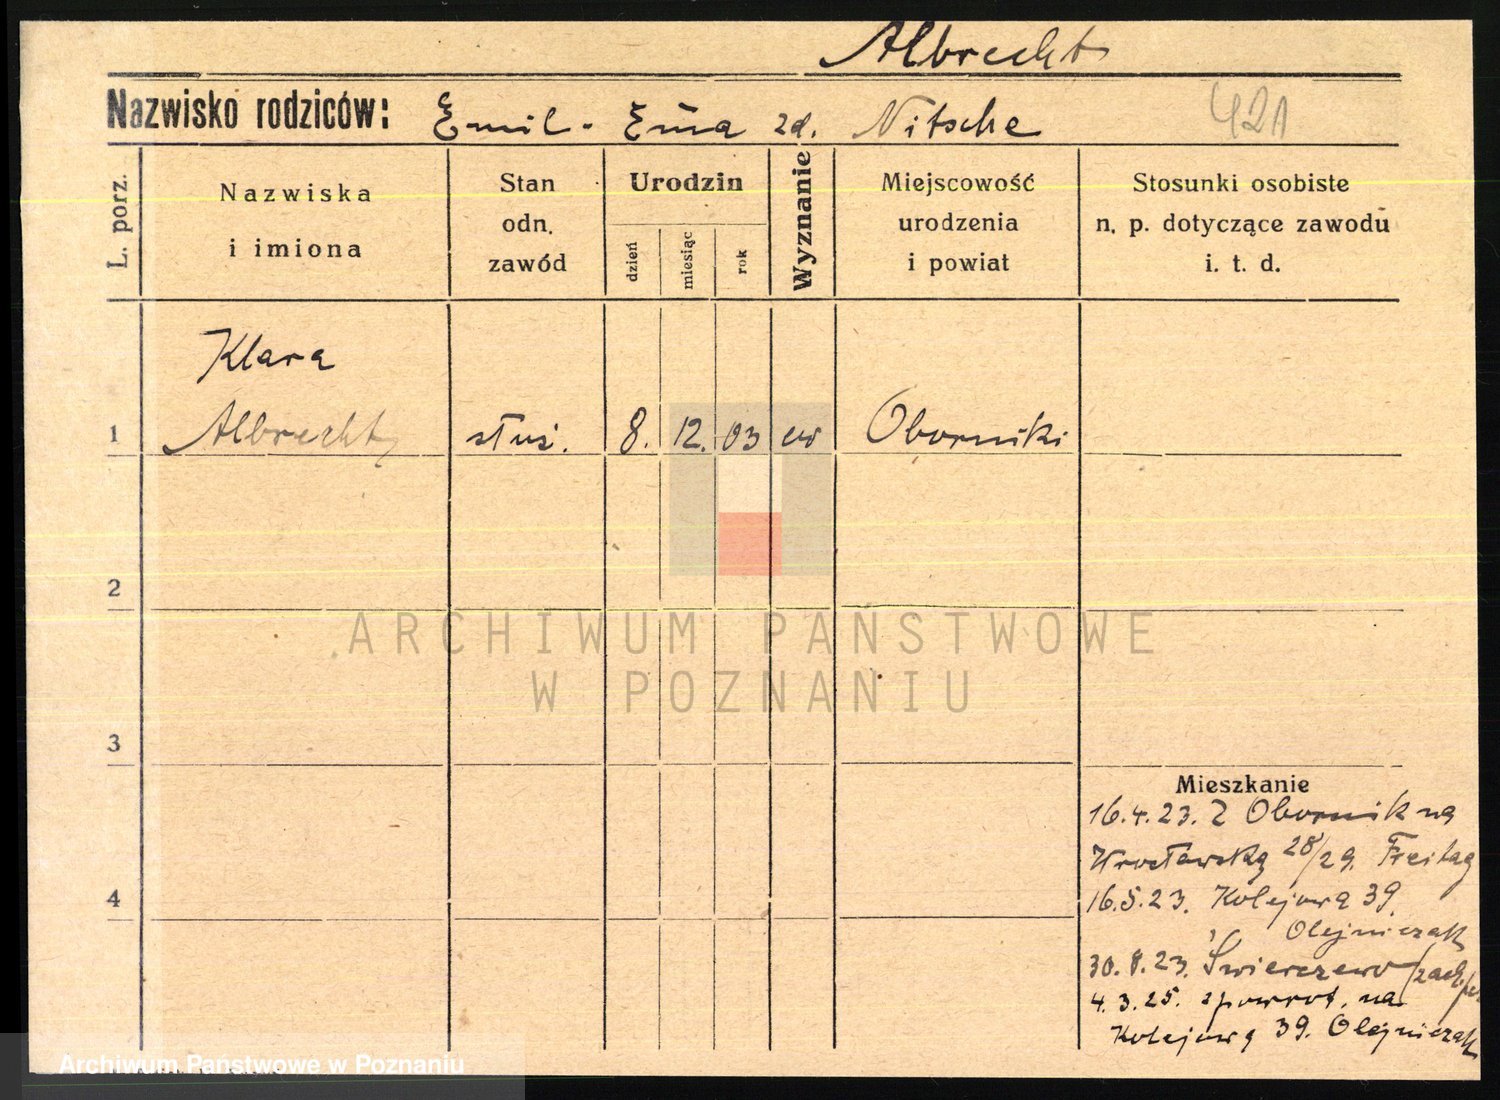 Albrecht
Nazwisko rodziców: Emil - Ema zd. Nitsche 421
L. porz.
Nazwiska
i imiona
Stan
odn.
zawód
Urodzin
dzień
miesiąc
rok
Wyznanie
Miejscowość
urodzenia
i powiat
Stosunki osobiste
n. p. dotyczące zawodu
i. t. d.
Klara
1 Albrecht służ. 8. 12. 03 ew Oborniki
2
ARCHIWUM PAŃSTWOWE
W POZNANIU
3
Mieszkanie
16.4.23. Z Obornik na
Wrocławską 28/29. Freitag
4
16.5.23. Kolejową 39.
Olejniczak
30.8.23. Świerczewo
4.3.25. zpowrot. na
Kolejową 39. Olejniczak
Archiwum Państwowe w Poznaniu